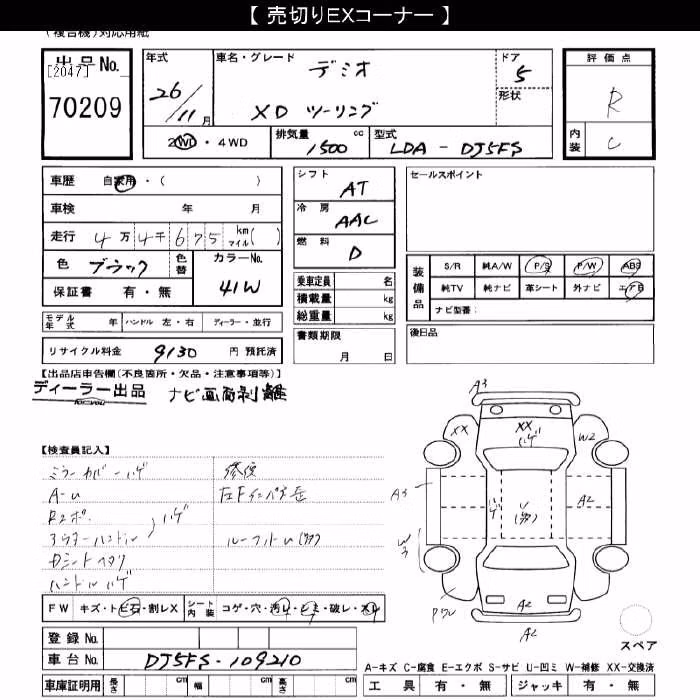 【 売切りEXコーナー 】
(複合機)対応用紙
出品No.
[2047]
70209
年式
26/11月
車名・グレード
デミオ
XD ツーリング
ドア
5
形状
評価点
R
内装
C
2WD・4WD
排気量 cc
1500
型式
LDA - DJ5FS
車歴 自家用・( )
車検 年 月
走行 4万4千675 km マイル( )
色 ブラック
色替
カラーNo.
41W
保証書 有・無
モデル年式 年 ハンドル 左・右 ディーラー・並行
リサイクル料金 9130 円 預託済
シフト
AT
冷房
AAC
燃料
D
乗車定員 名
積載量 kg
総重量 kg
書類期限
月 日
セールスポイント
装備品
S/R 純A/W P/S P/W ABS
純TV 純ナビ 革シート 外ナビ エアB
ナビ型番:
後日品
【出品店申告欄(不良箇所・欠品・注意事項等)】
ディーラー出品 ナビ画面剥離
【検査員記入】
ミラーカバーハゲ
A-u
ハゲ
ハンドルハゲ
修復
左Fインパネ左
A3
XX
XX
ハゲ
W2
A3
ハゲ
U
A2
W3
A2
A2
スペア
FW キズ・トビ石・割レX シート内装 コゲ・穴・汚レ・シミ・破レ・スレ
登録No.
車台No. DJ5FS-109210
車庫証明用 長さ cm 幅 cm 高さ cm
A-キズ C-腐食 E-エクボ S-サビ U-凹ミ W-補修 XX-交換済
工具 有・無 ジャッキ 有・無